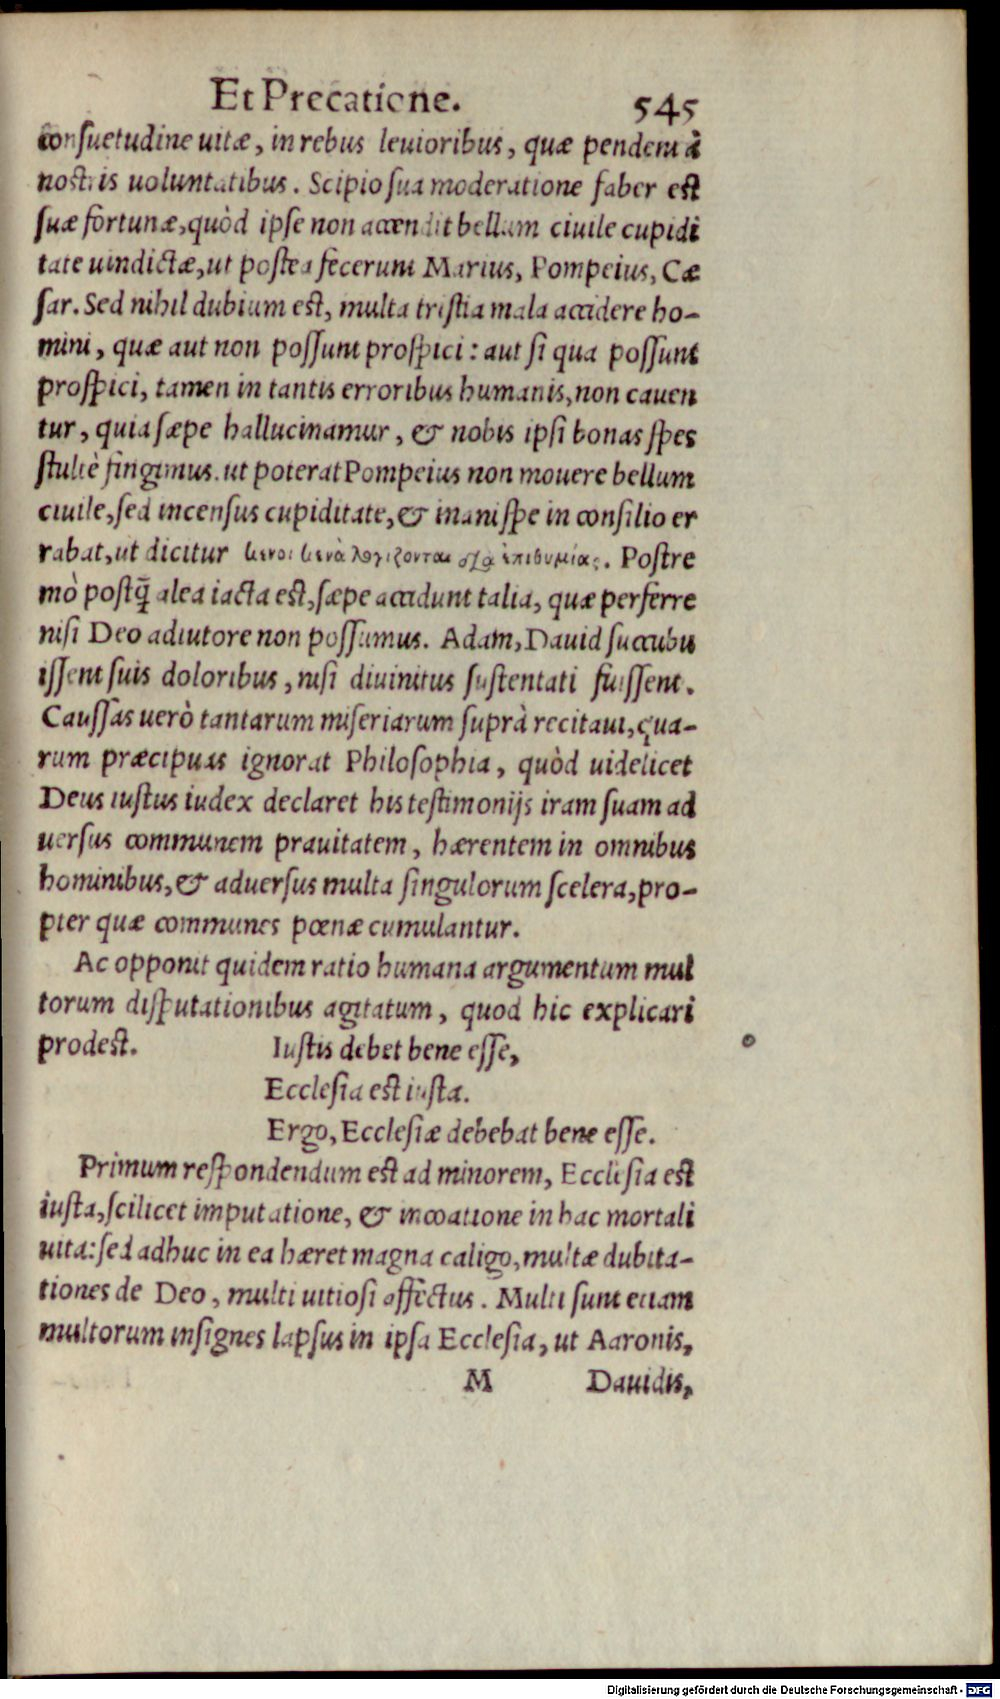 Et Precatione. 545
consuetudine uitæ, in rebus leuioribus, quæ pendent à
nostris uoluntatibus. Scipio sua moderatione faber est
suæ fortunæ, quòd ipse non accendit bellum ciuile cupidi
tate uindictæ, ut postea fecerunt Marius, Pompeius, Cæ
sar. Sed nihil dubium est, multa tristia mala accidere ho-
mini, quæ aut non possunt prospici: aut si qua possunt
prospici, tamen in tantis erroribus humanis, non cauen
tur, quia sæpe hallucinamur, & nobis ipsi bonas spes
stultè fingimus. ut poterat Pompeius non mouere bellum
ciuile, sed incensus cupiditate, & inani spe in consilio er
rabat, ut dicitur κενοὶ κενὰ λογίζονται διὰ ἐπιθυμίας. Postre
mò postq̃ alea iacta est, sæpe accidunt talia, quæ perferre
nisi Deo adiutore non possumus. Adam, Dauid succubu
issent suis doloribus, nisi diuinitus sustentati fuissent.
Caussas uerò tantarum miseriarum suprà recitaui, qua-
rum præcipuas ignorat Philosophia, quòd uidelicet
Deus iustus iudex declaret his testimonijs iram suam ad
uersus communem prauitatem, hærentem in omnibus
hominibus, & aduersus multa singulorum scelera, pro-
pter quæ communes pœnæ cumulantur.
Ac opponit quidem ratio humana argumentum mul
torum disputationibus agitatum, quod hic explicari
prodest. Iustis debet bene esse,
Ecclesia est iusta.
Ergo, Ecclesiæ debebat bene esse.
Primum respondendum est ad minorem, Ecclesia est
iusta, scilicet imputatione, & inchoatione in hac mortali
uita: sed adhuc in ea hæret magna caligo, multæ dubita-
tiones de Deo, multi uitiosi affectus. Multi sunt etiam
multorum insignes lapsus in ipsa Ecclesia, ut Aaronis,
M Dauidis,
Digitalisierung gefördert durch die Deutsche Forschungsgemeinschaft - DFG